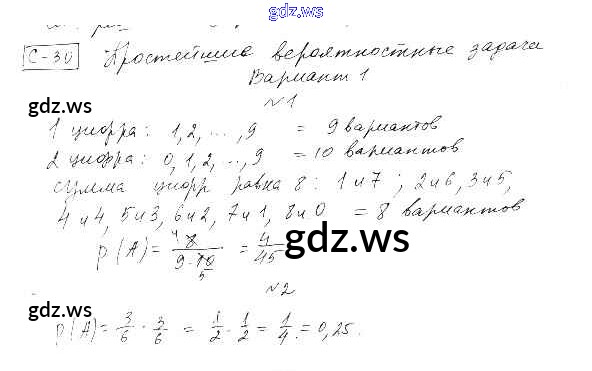 gdz.ws
С-30 Простейшие вероятностные задачи
Вариант 1
№1
gdz.ws
1 цифра: 1,2, ..., 9 = 9 вариантов
2 цифра: 0,1,2, ..., 9 = 10 вариантов
сумма цифр равна 8: 1 и 7; 2 и 6, 3 и 5,
4 и 4, 5 и 3, 6 и 2, 7 и 1, 8 и 0 = 8 вариантов
P(A) = 8/(9·10) = 4/45
gdz.ws
№2
gdz.ws
P(A) = 3/6 · 3/6 = 1/2 · 1/2 = 1/4 = 0,25.
gdz.ws